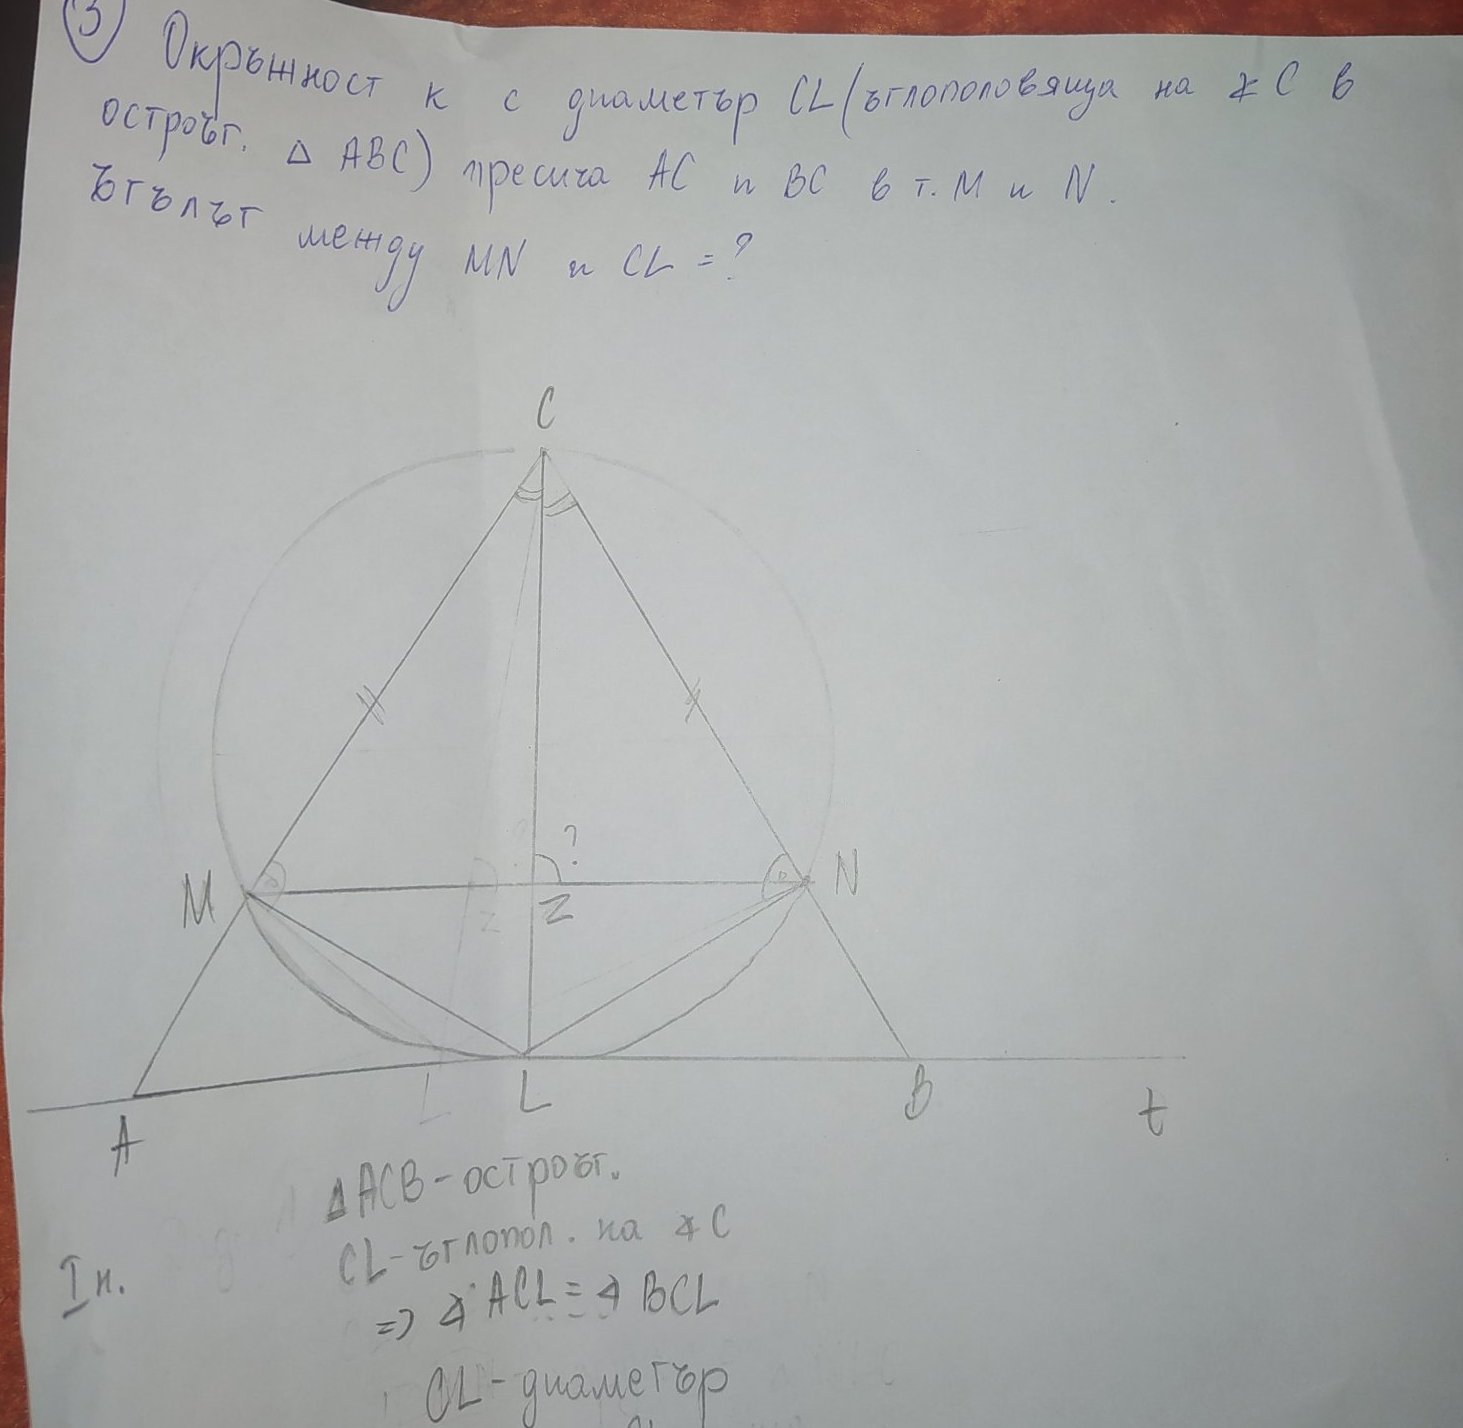 3 Окръжност к с диаметър CL (ъглополовяща на ∢ C в
остроъг. △ ABC) пресича AC и BC в т. M и N.
Ъгълът между MN и CL = ?
C
?
M
N
Z
Z
L
L
A
B
t
△ ACB - остроъг.
CL - ъглопол. на ∢ C
I н.
=> ∢ ACL = ∢ BCL
CL - диаметър